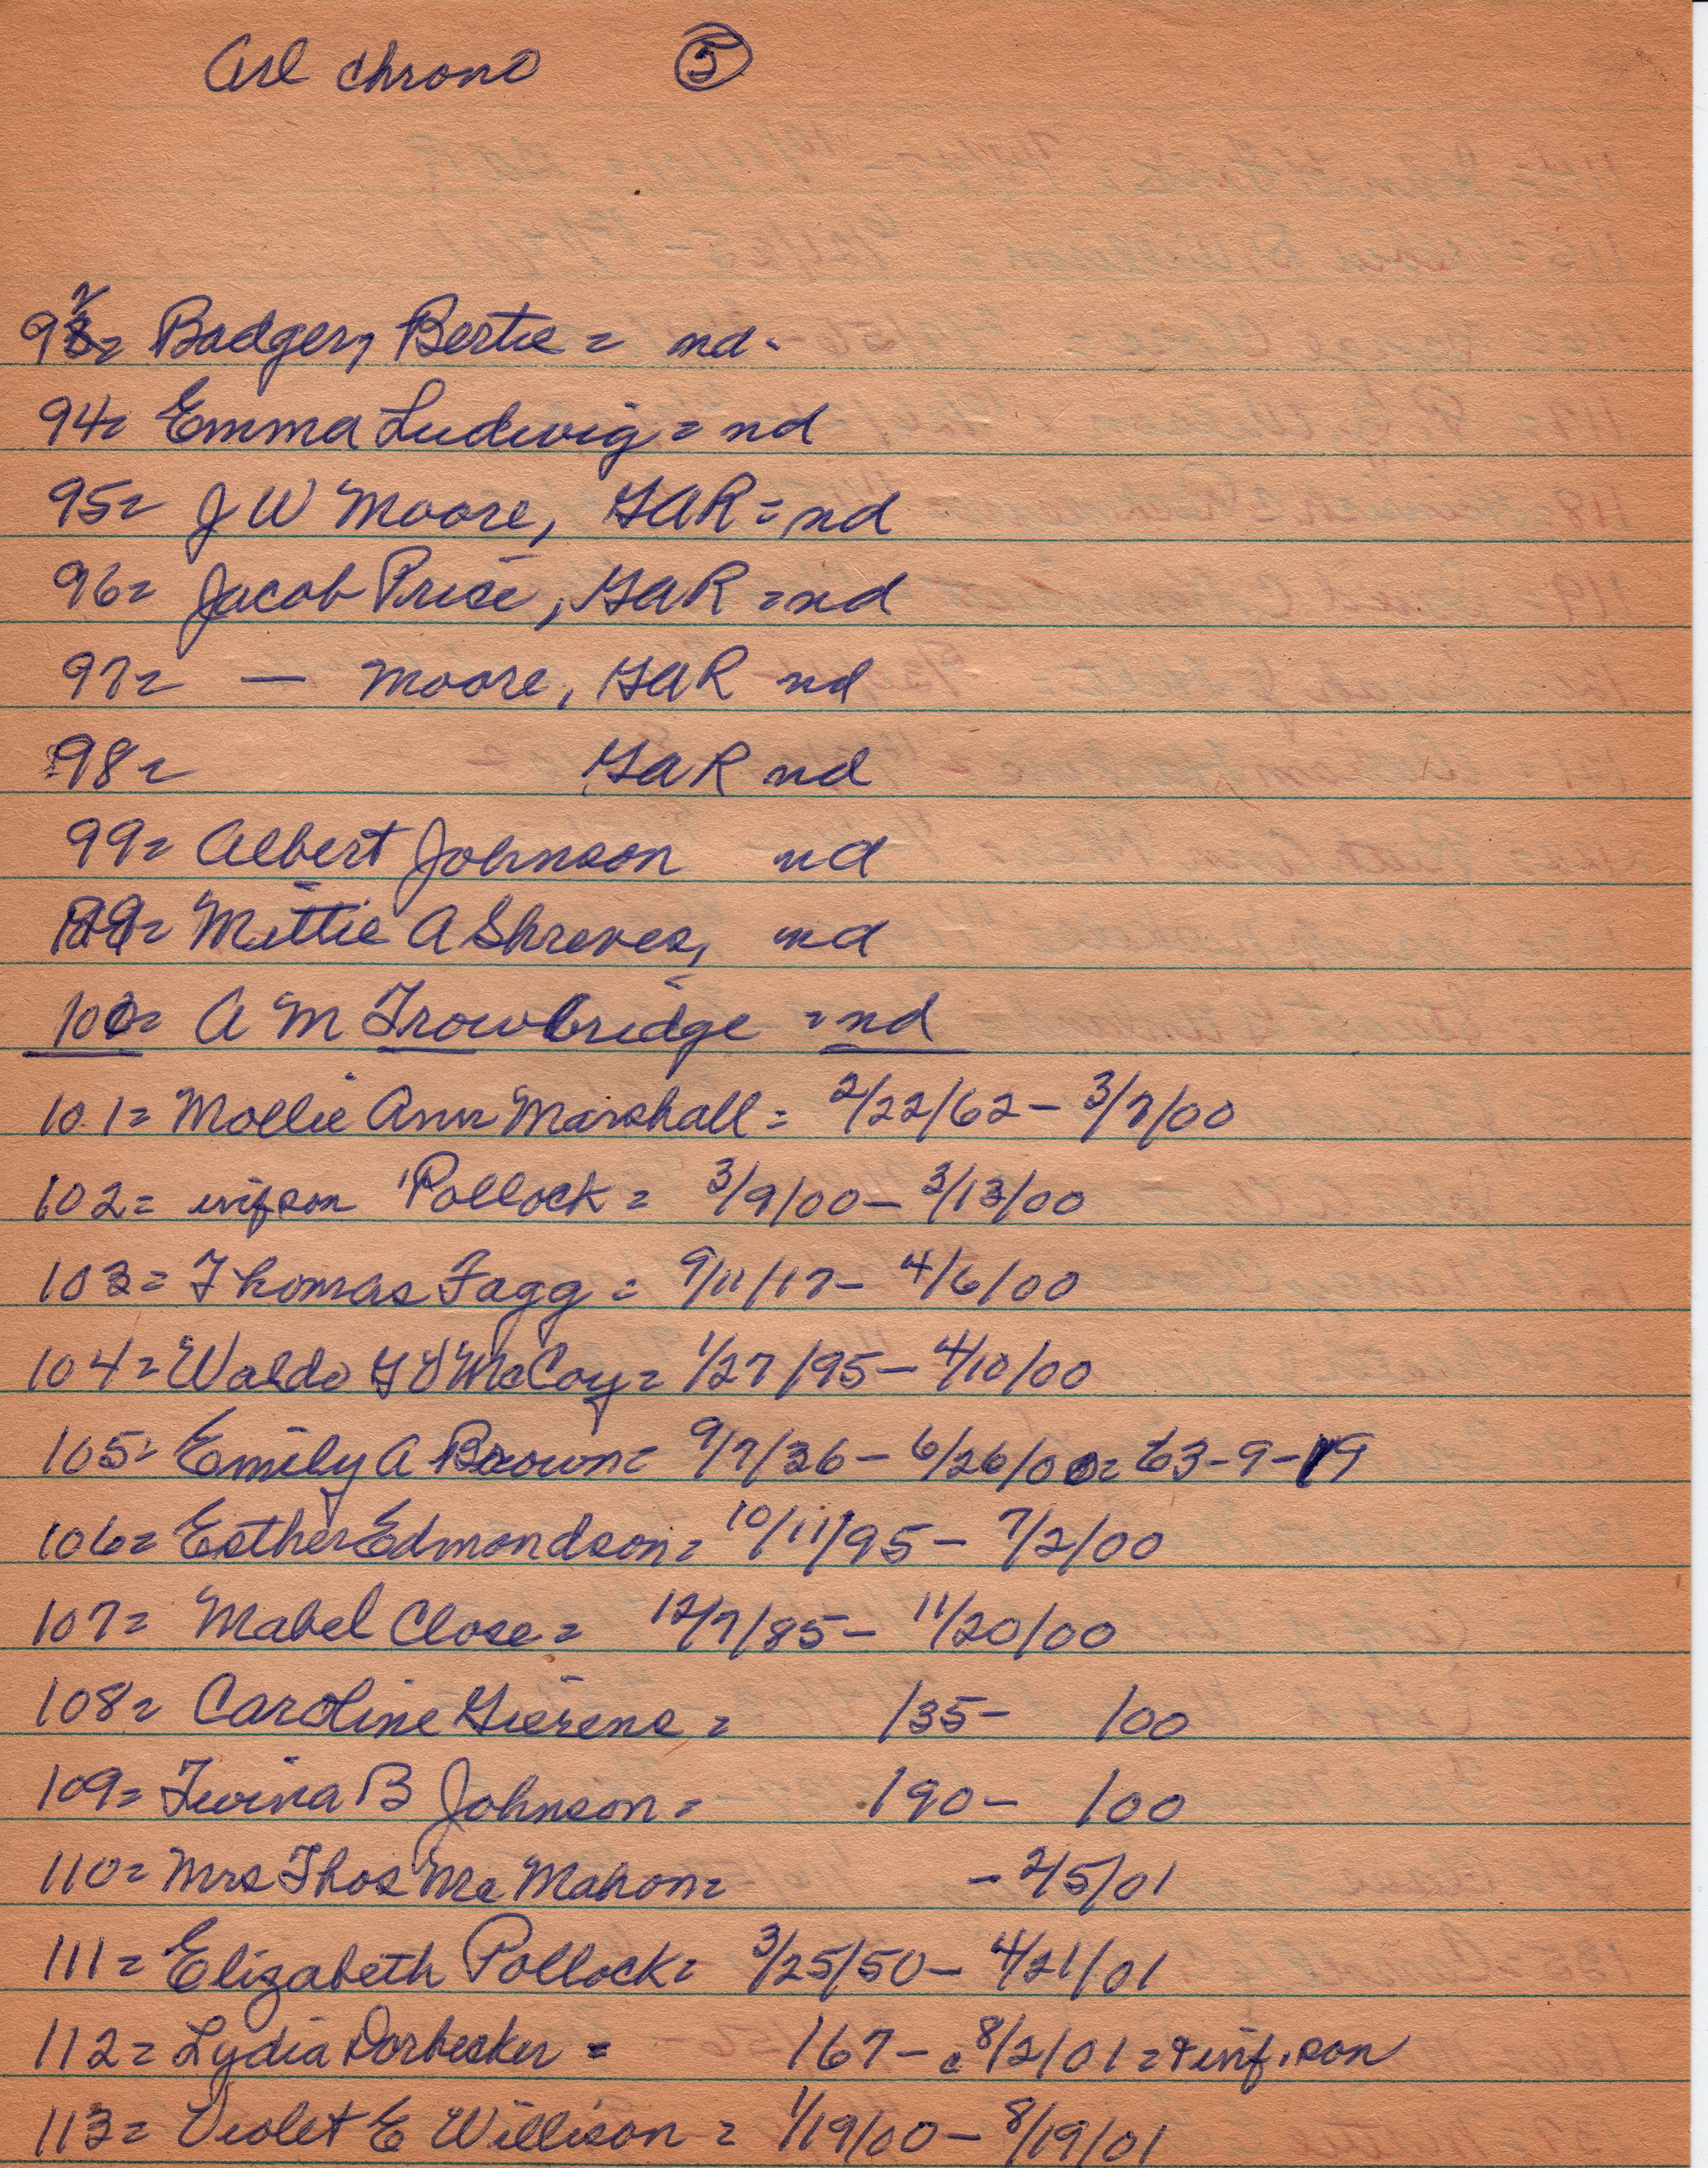 Arl chrono 5
93= Badger, Bertie = nd.
94= Emma Ludwig = nd
95= J W Moore, GAR = nd
96= Jacob Price, GAR = nd
97= — Moore, GAR nd
98= GAR nd
99= Albert Johnson nd
Mittie A Shreves, nd
100= A M Trowbridge = nd
101= Mollie Ann Marshall = 2/22/62 - 3/7/00
102= inf son Pollock = 3/9/00 - 3/13/00
103= Thomas Fagg = 9/11/17 - 4/6/00
104= Waldo McCoy = 1/27/95 - 4/10/00
105= Emily A Brown = 9/7/36 - 6/26/00 = 63-9-19
106= Esther Edmondson = 10/11/95 - 7/2/00
107= Mabel Close = 12/7/85 - 11/20/00
108= Caroline Gierens = /35- /00
109= B Johnson = /90- /00
110= Mrs Thos McMahon = - 2/5/01
111= Elizabeth Pollock = 3/25/50 - 4/21/01
112= Lydia Dorbecker = /67 - c 8/2/01 = + inf. son
113= Violet E Willison = 1/19/00 - 8/19/01